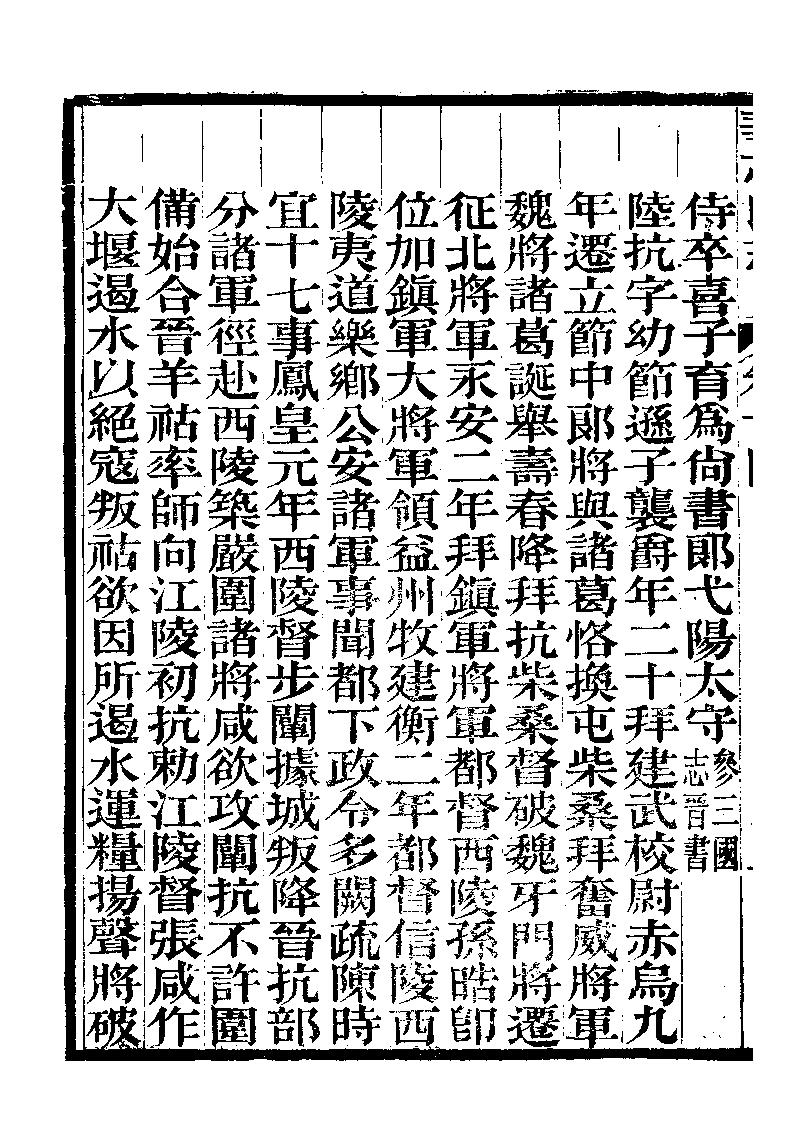 侍卒喜子育爲尙書郞弋陽太守參三國志晉書
陸抗字幼節遜子襲爵年二十拜建武校尉赤烏九
年遷立節中郞將與諸葛恪換屯柴桑拜奮威將軍
魏將諸葛誕舉壽春降拜抗柴桑督破魏牙門將遷
征北將軍永安二年拜鎭軍將軍都督西陵孫皓卽
位加鎭軍大將軍領益州牧建衡二年都督信陵西
陵夷道樂鄉公安諸軍事聞都下政令多闕疏陳時
宜十七事鳳皇元年西陵督步闡據城叛降晉抗部
分諸軍徑赴西陵築嚴圍諸將咸欲攻闡抗不許圍
備始合晉羊祜率師向江陵初抗勅江陵督張咸作
大堰遏水以絕寇叛祜欲因所遏水運糧揚聲將破